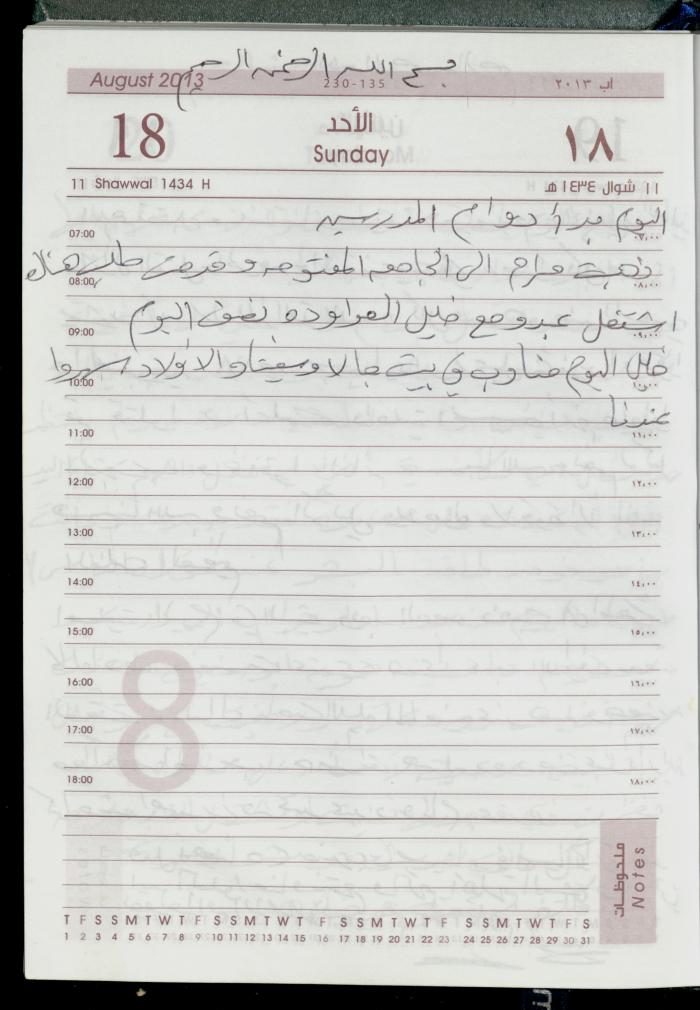 بسم الله الرحمن الرحيم
August 2013
230-135
آب ٢٠١٣
18
الأحد
Sunday
١٨
11 Shawwal 1434 H
١١ شوال ١٤٣٤ هـ
اليوم بدأ دوام المدرسين
07:00 ٠٧,٠٠
ذهبت مرام الى الجامعه المفتوحه وقدمت طلب هناك
08:00 ٠٨,٠٠
اشتغل عبد ومع خليل نصف اليوم
09:00 ٠٩,٠٠
خليل اليوم مناوب في بيت جالا والاولاد سهروا
10:00 ١٠,٠٠
عندنا
11:00 ١١,٠٠
12:00 ١٢,٠٠
13:00 ١٣,٠٠
14:00 ١٤,٠٠
15:00 ١٥,٠٠
16:00 ١٦,٠٠
17:00 ١٧,٠٠
18:00 ١٨,٠٠
8
ملحوظات
Notes
T F S S M T W T F S S M T W T F S S M T W T F S S M T W T F S
1 2 3 4 5 6 7 8 9 10 11 12 13 14 15 16 17 18 19 20 21 22 23 24 25 26 27 28 29 30 31